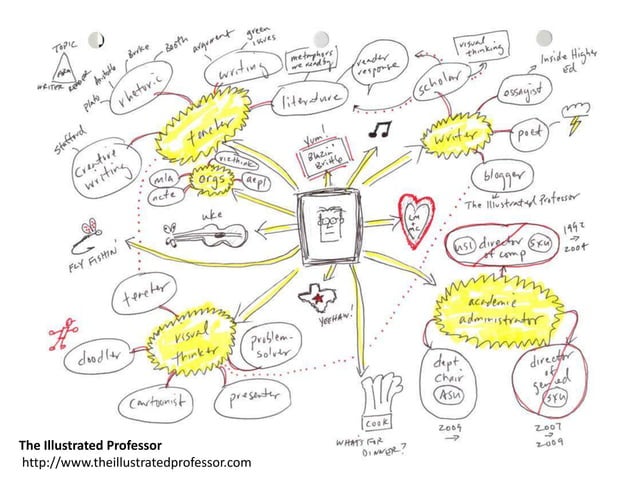 TOPIC
WRITER READER
Plato
Aristotle
Burke
Booth
rhetoric
argument
green
writing
metaphors
we read by
reader
response
literature
visual
thinking
scholar
Inside Higher
Ed
essayist
writer
poet
blogger
The Illustrated Professor
Stafford
creative
writing
teacher
vizthink
mla
orgs
aepl
ncte
Yum!
uke
FLY FISHIN'
YEEHAW!
usi director SXU
of comp
1992
2004
academic
administrator
dept.
chair
ASU
2009
director
of
gen ed
SXU
2007
2009
visual
thinker
doodler
problem-
solver
cartoonist
presenter
COOK
WHAT'S FOR
DINNER?
The Illustrated Professor
http://www.theillustratedprofessor.com